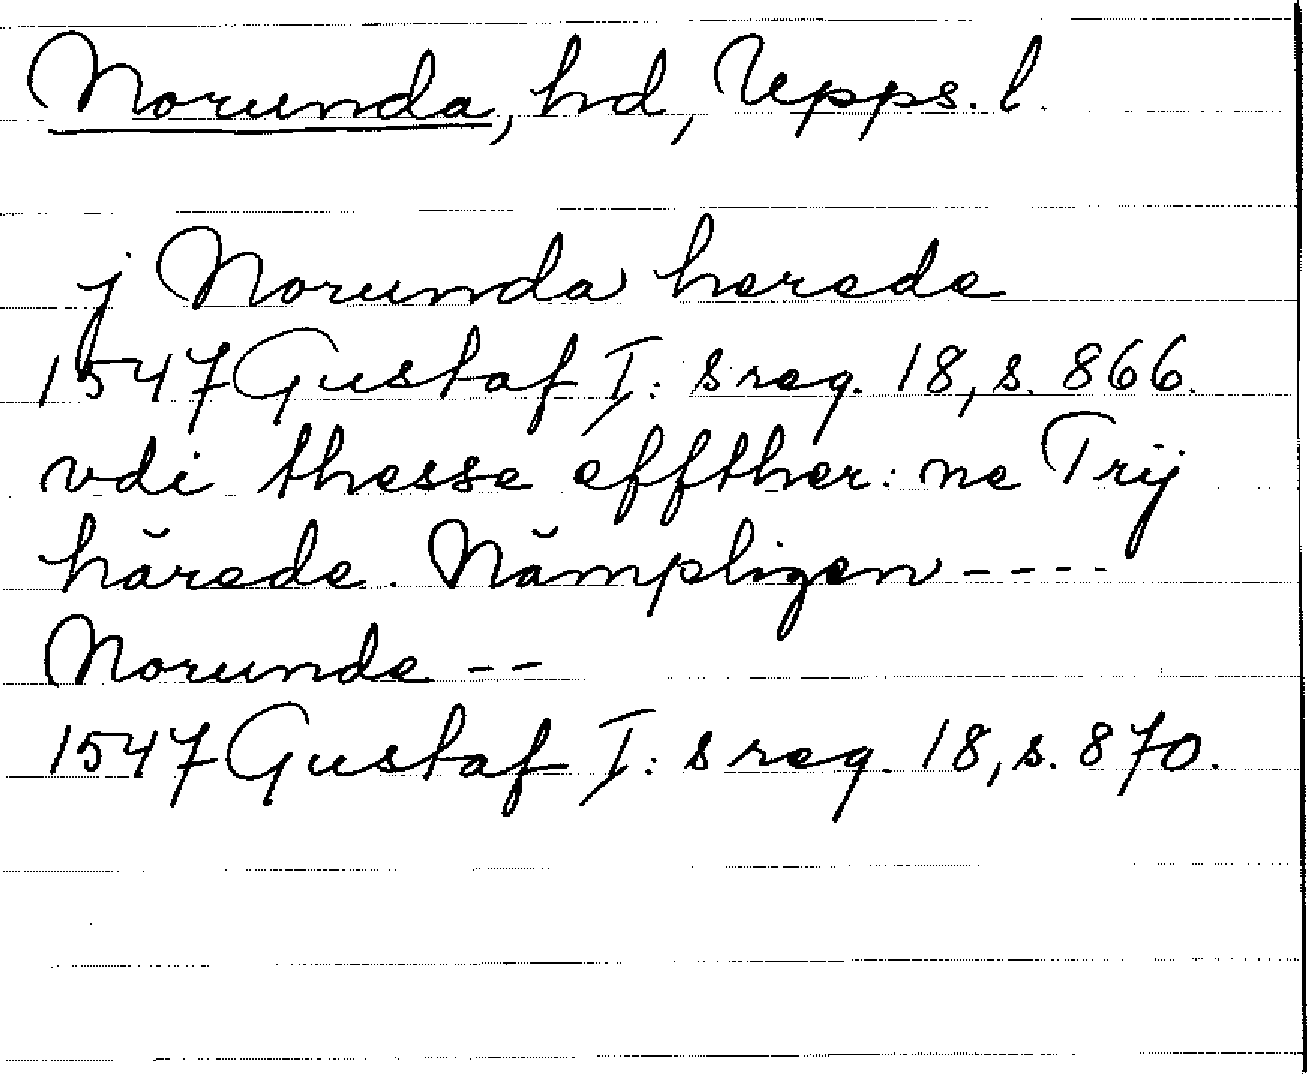 Norunda, hd, Upps. l.
j Norunda herede
1547 Gustaf I: s reg. 18, s. 866.
vdi thesse effther: ne Trij
hărede. Nămpligen ----
Norunde --
1547 Gustaf I: s reg. 18, s. 870.